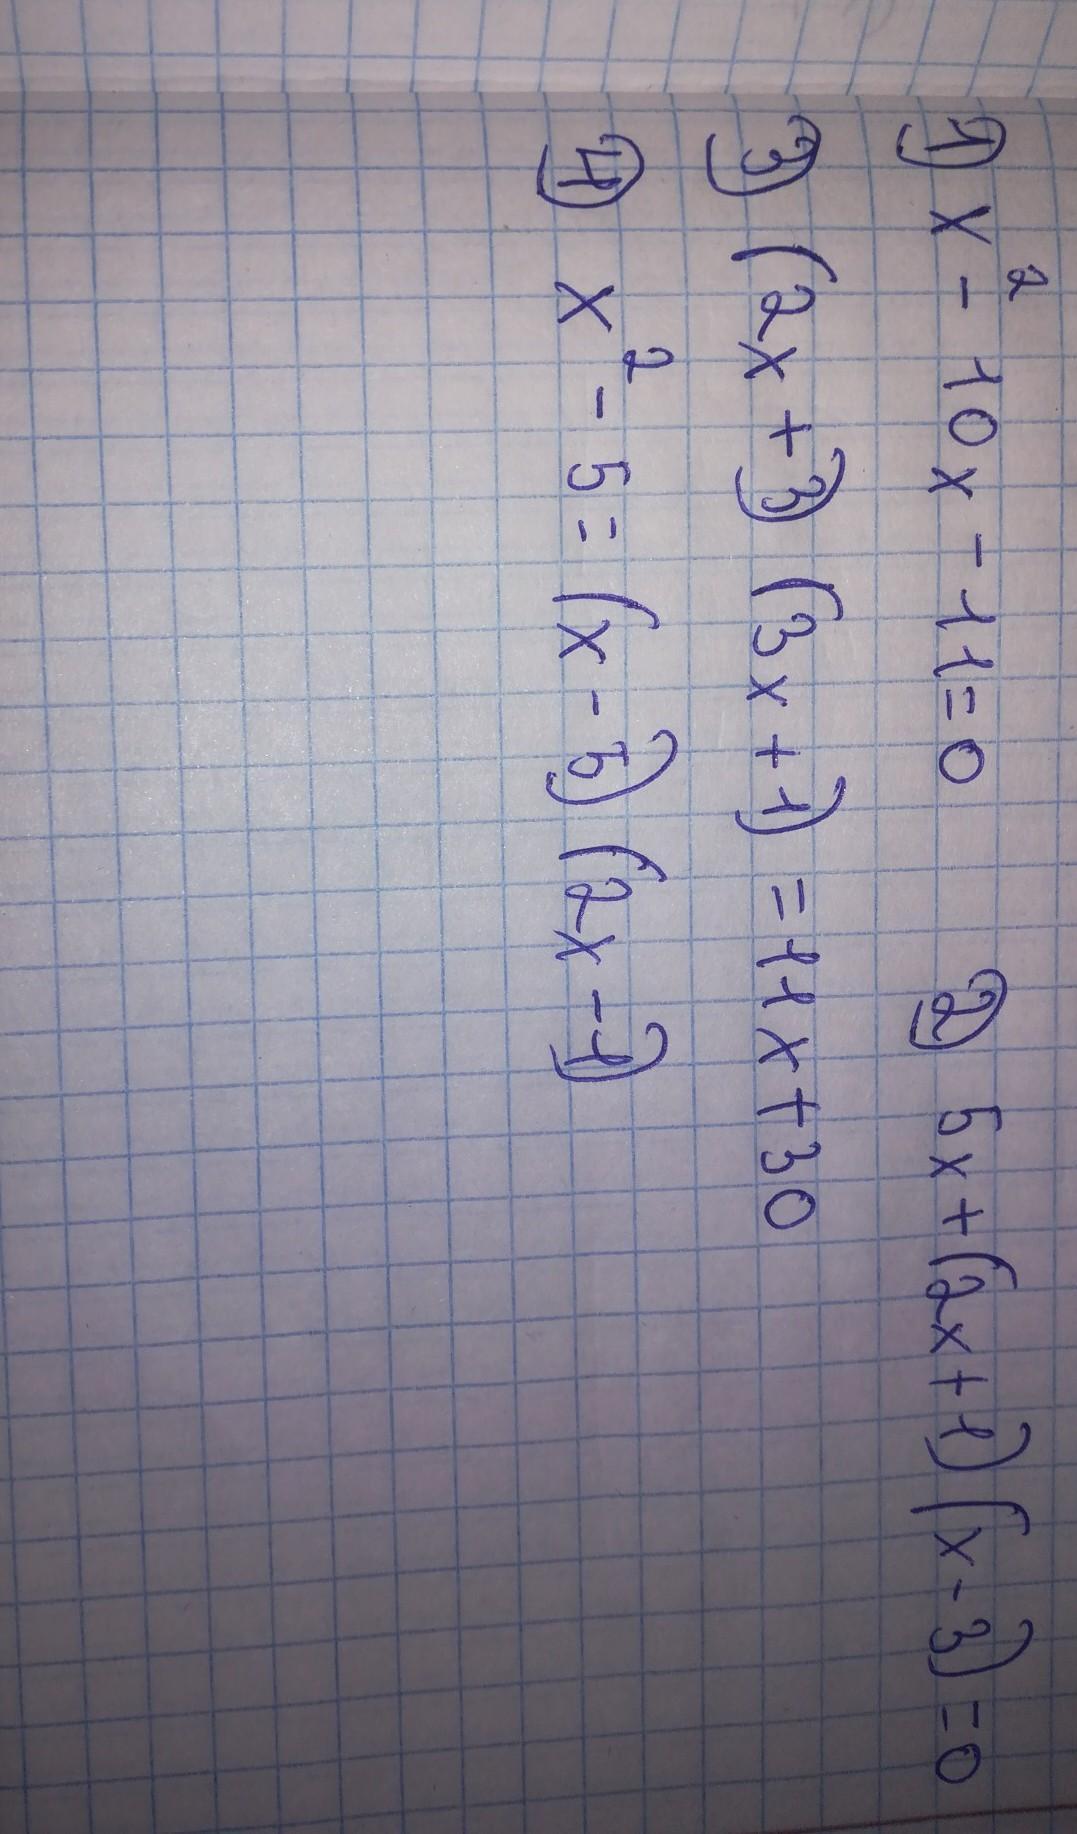 1) x² - 10x - 11 = 0 2) 5x + (2x + 1) (x - 3) = 0
3) (2x + 3) (3x + 1) = 11x + 30
4) x² - 5 = (x - 5) (2x - 1)